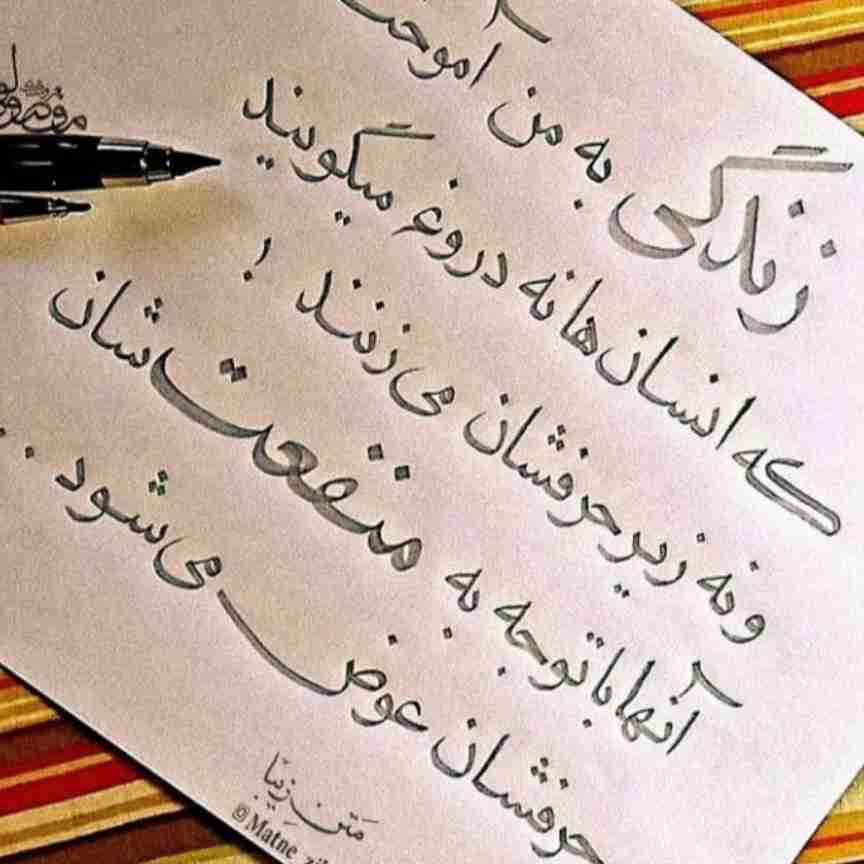 زندگی به من آموخت
که انسان‌ها نه دروغ میگویند
و نه زیر حرفشان می زنند !
آنها با توجه به منفعت شان
حرفشان عوض می شود ..
متن زیبا
©Matne